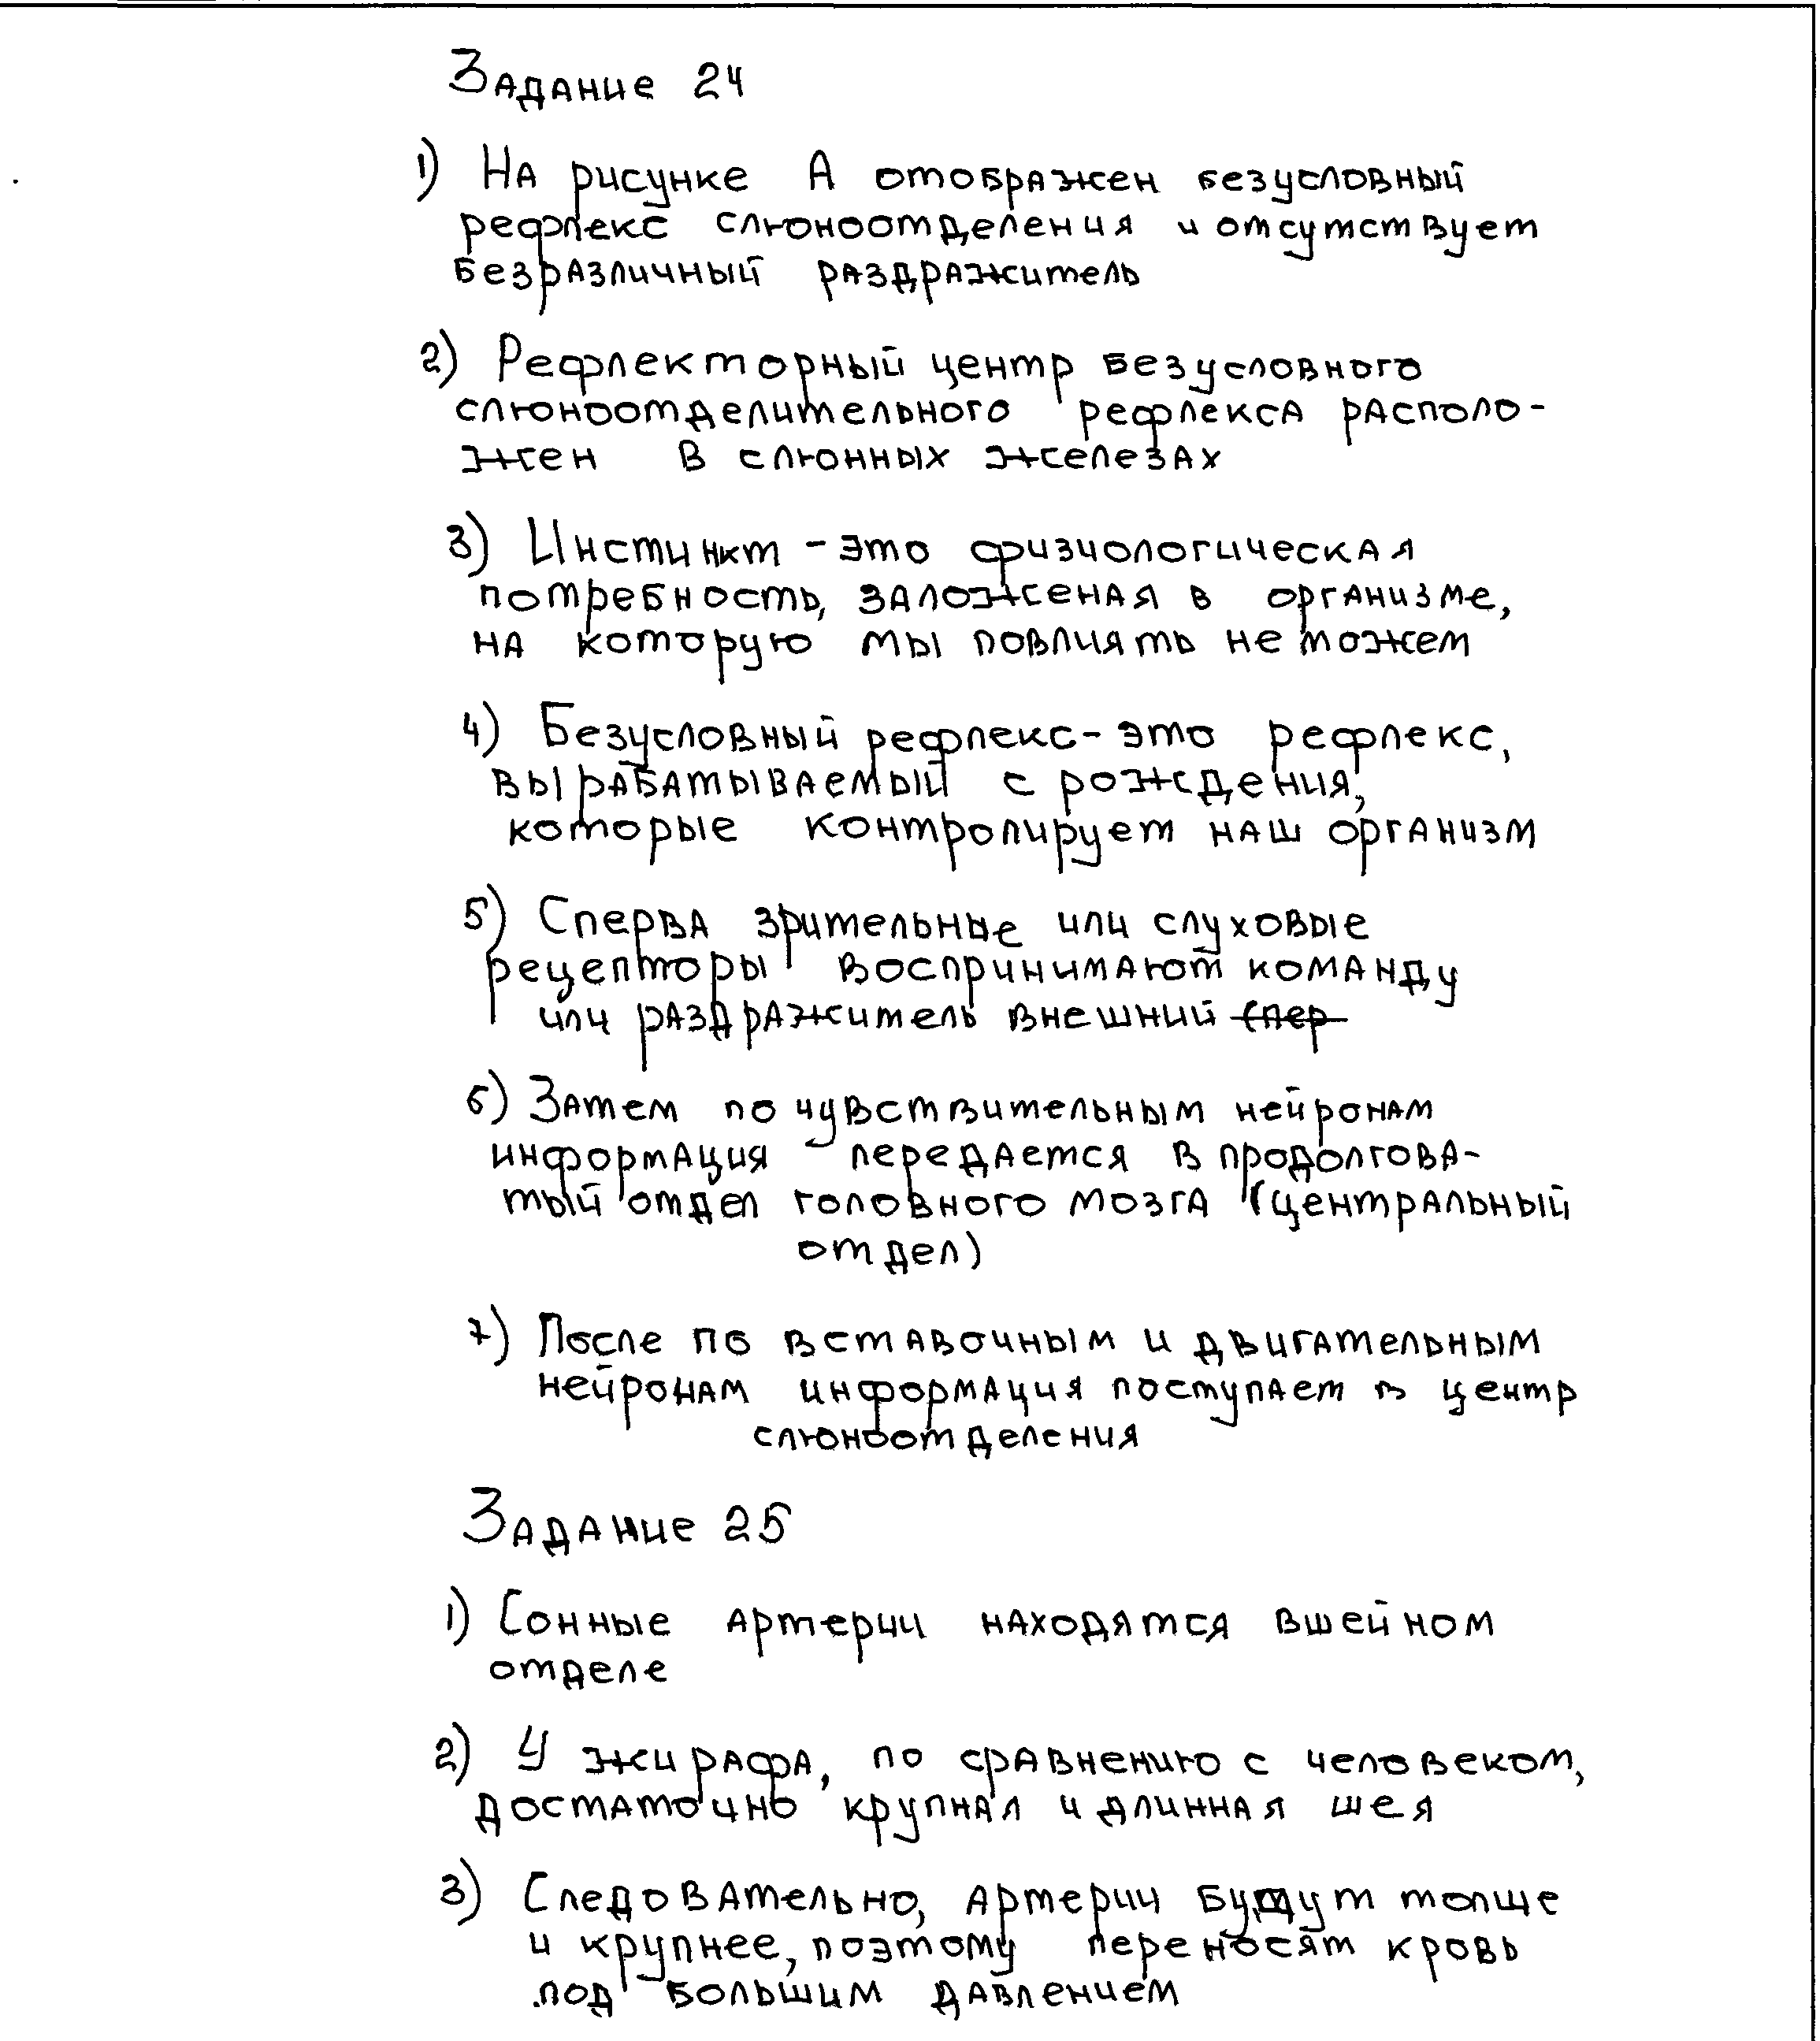 Задание 24
1) На рисунке А отображен безусловный
рефлекс слюноотделения и отсутствует
безразличный раздражитель
2) Рефлекторный центр безусловного
слюноотделительного рефлекса располо-
жен в слюнных железах
3) Инстинкт - это физиологическая
потребность, заложеная в организме,
на которую мы повлиять не можем
4) Безусловный рефлекс - это рефлекс,
вырабатываемый с рождения,
которые контролирует наш организм
5) Сперва зрительные или слуховые
рецепторы воспринимают команду
или раздражитель внешний спер
6) Затем по чувствительным нейронам
информация передается в продолгова-
тый отдел головного мозга (центральный
отдел)
7) После по вставочным и двигательным
нейронам информация поступает в центр
слюноотделения
Задание 25
1) Сонные артерии находятся в шейном
отделе
2) У жирафа, по сравнению с человеком,
достаточно крупная и длинная шея
3) Следовательно, артерии будут толще
и крупнее, поэтому переносят кровь
под большим давлением